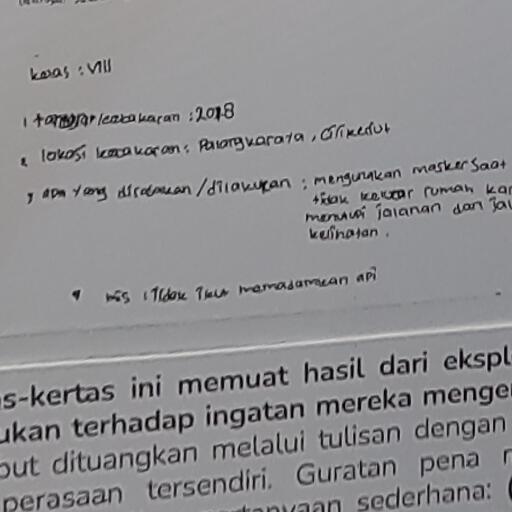 kelas : VIII
1 tanggal kebakaran : 2018
2 lokasi kebakaran : Palangkaraya,
3 apa yang dirasakan / dilakukan : mengunakan masker saat
tidak keluar rumah kar
menutupi jalanan dan jal
kelihatan.
4 mis : Tidak Ikut memadamkan api
s-kertas ini memuat hasil dari ekspl
ukan terhadap ingatan mereka menge
but dituangkan melalui tulisan dengan
perasaan tersendiri. Guratan pena
tanyaan sederhana: (